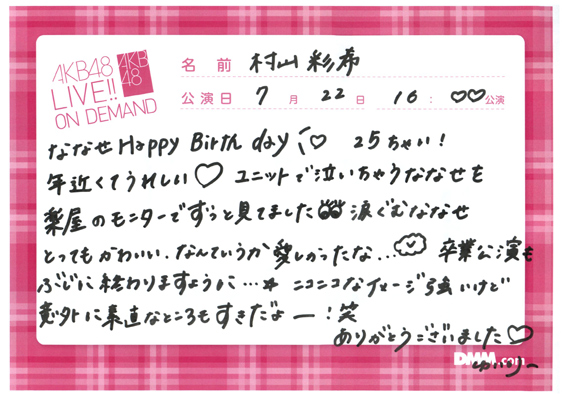 AKB48
LIVE!!
ON DEMAND
AKB
48
名前 村山彩希
公演日 7月 22日 16:♡♡公演
ななせ Happy Birth day ♡ 25ちゃい!
年近くてうれしい♡ ユニットで泣いちゃうななせも
楽屋のモニターでずっと見てました 涙ぐむななせ
とってもかわいい、なんていうか愛しかったな... 卒業公演も
ぶじに終わりますように…★ ニコニコなイメージ強いけど
意外に素直なところもすきだよー!笑
ありがとうございました♡
DMM.com
ゆいりー